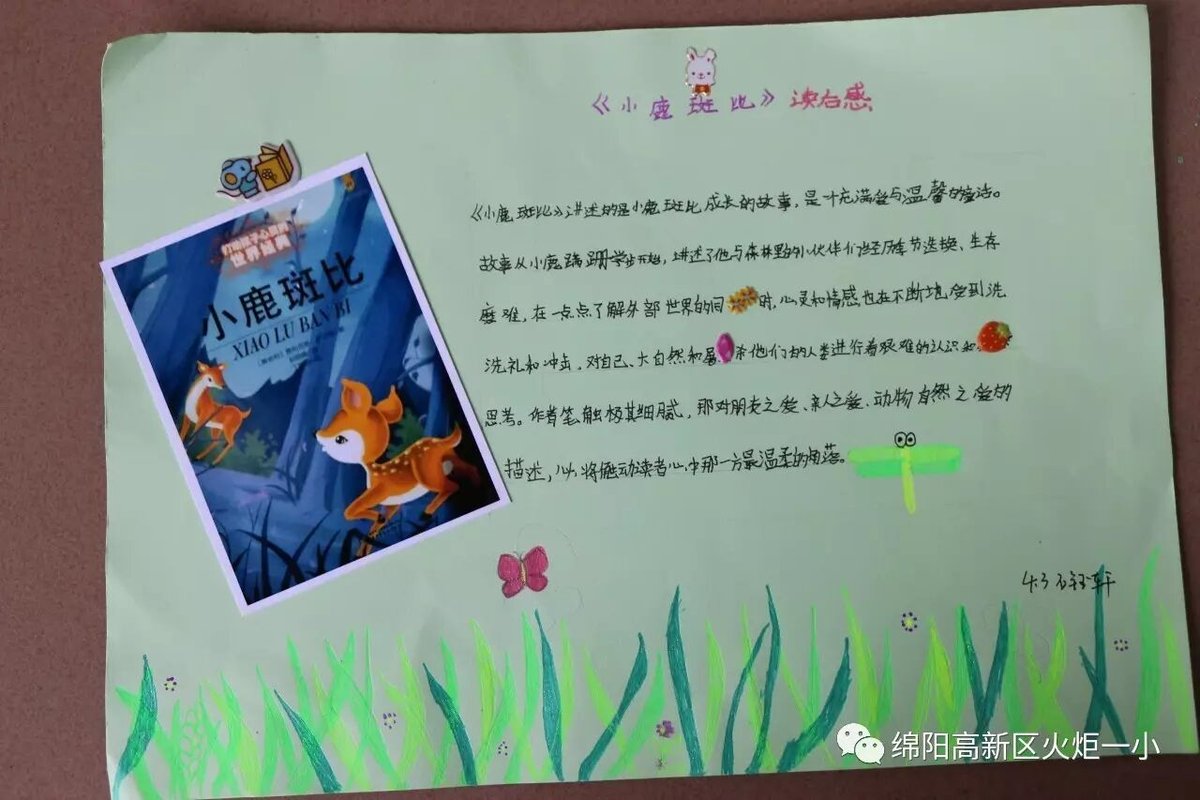 《小鹿斑比》读后感
《小鹿斑比》讲述的是小鹿斑比成长的故事，是个充满爱与温馨的童话。
故事从小鹿蹒跚学步开始，讲述了他与森林里的小伙伴们经历季节迭换、生存
磨难，在一点点了解外部世界的同时，心灵和情感也在不断地受到洗
洗礼和冲击。对自己、大自然和 他们的人类进行着艰难的认识和
思考。作者笔触极其细腻，那对朋友之爱、亲人之爱、动物自然之爱的
描述，必将触动读者心中那一方最温柔的角落。
世界经典
小鹿斑比
XIAO LU BAN BI
轩
绵阳高新区火炬一小